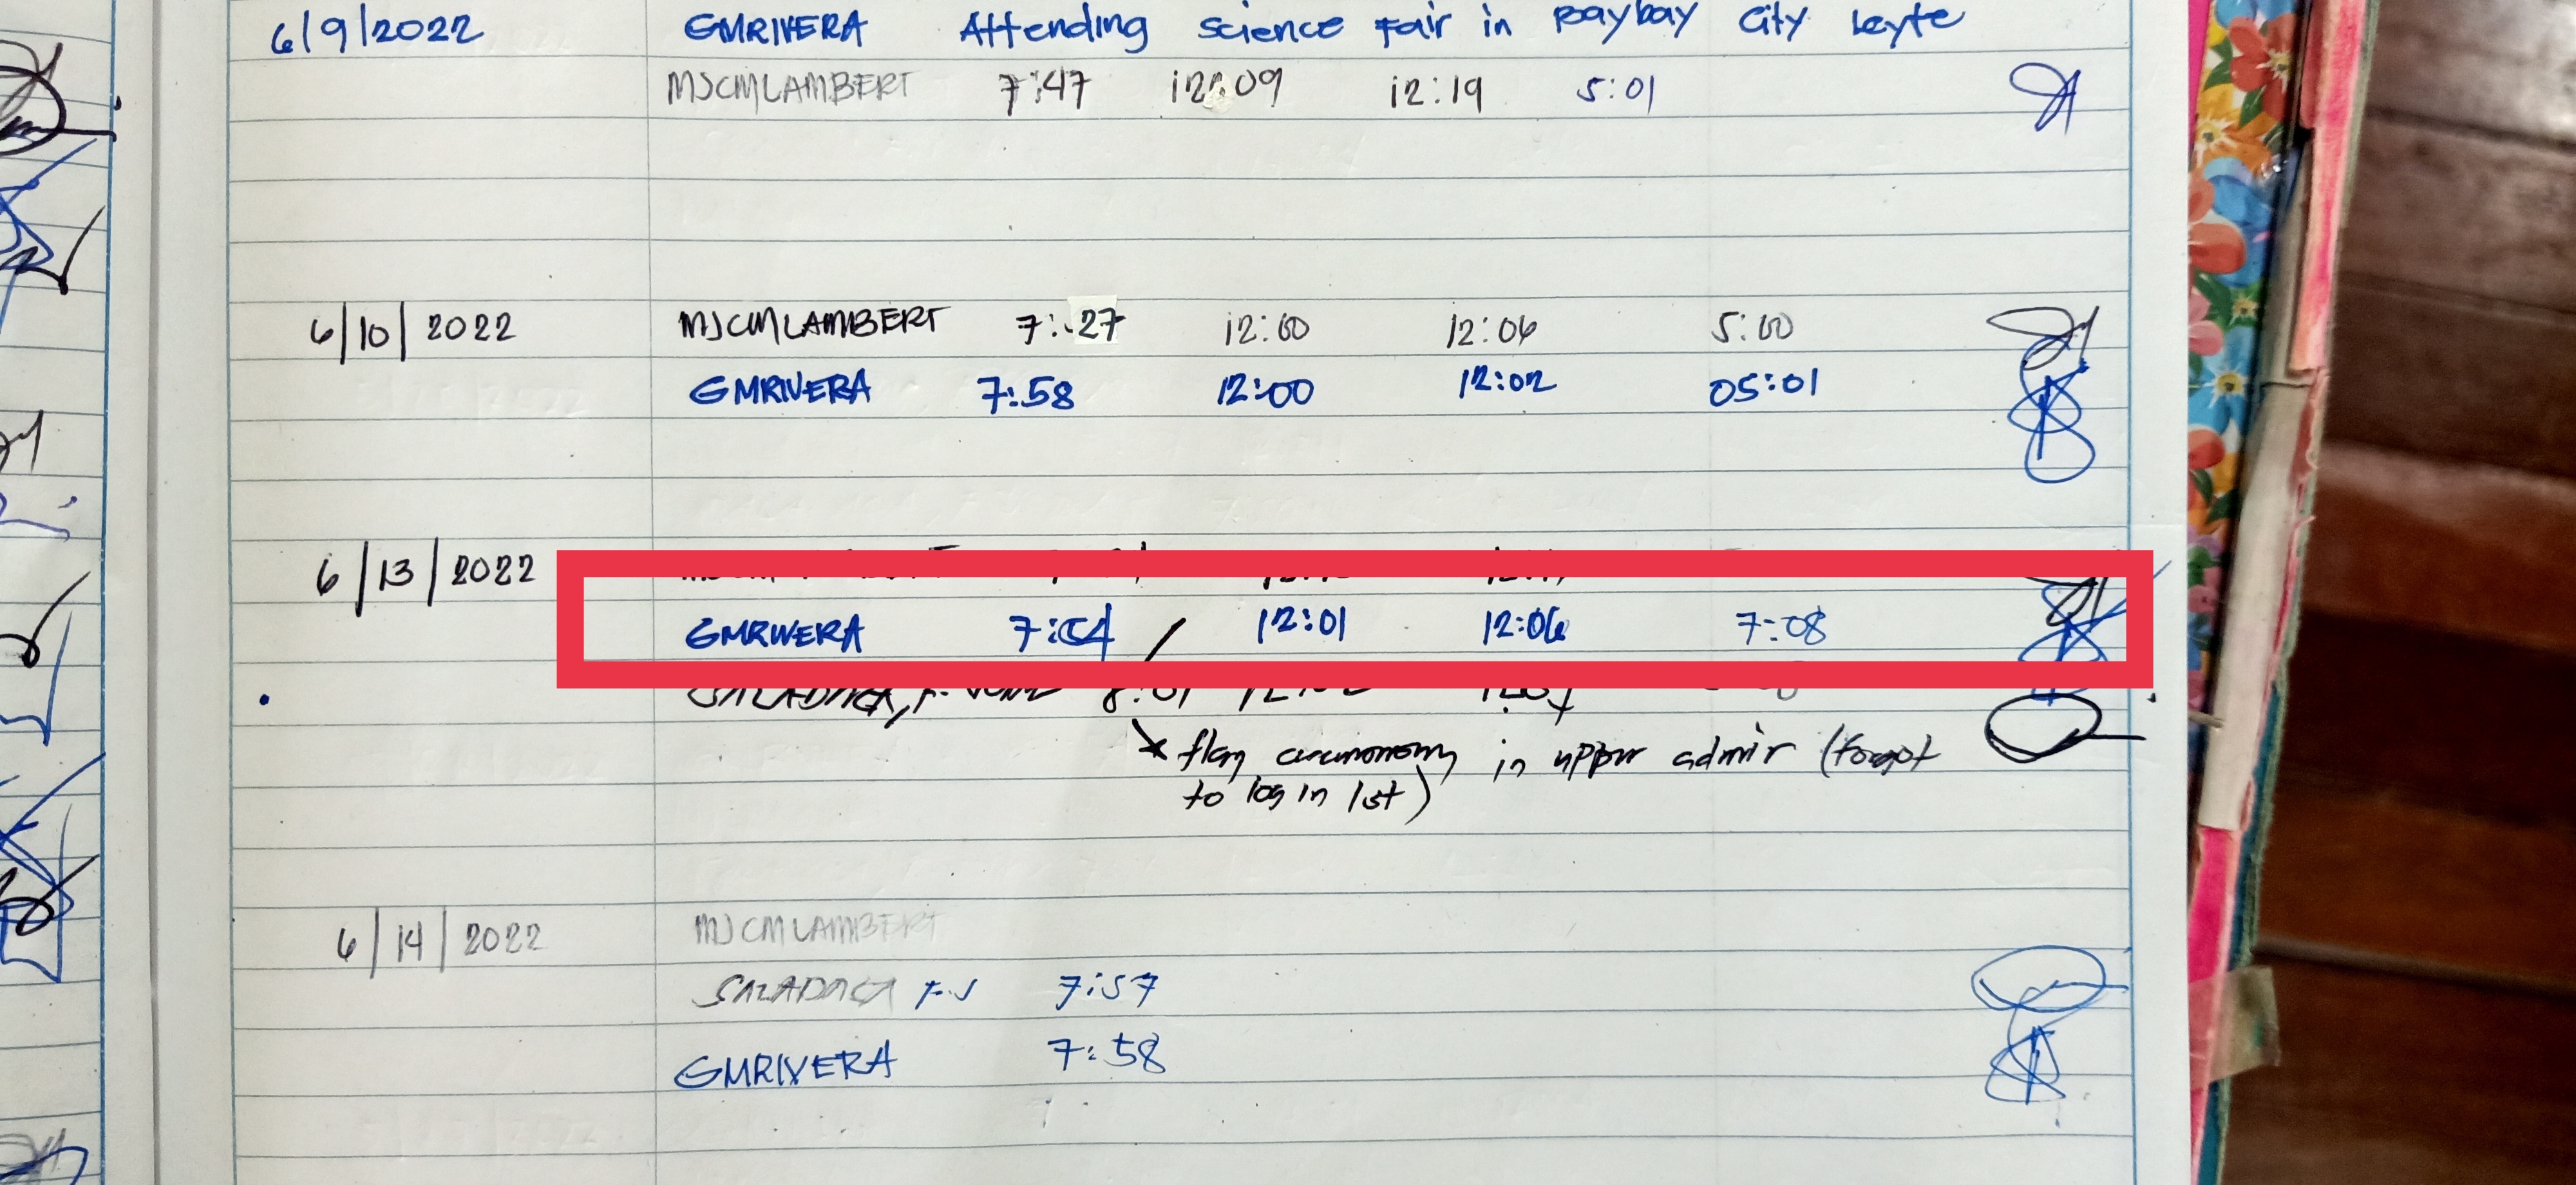 6/9/2022 GMRIVERA Attending Science Fair in Baybay City Leyte
MJCMLAMBERT 7:47 12:09 12:19 5:01
6/10/2022 MJCMLAMBERT 7:27 12:00 12:06 5:00
GMRIVERA 7:58 12:00 12:02 05:01
6/13/2022
GMRIVERA 7:54 12:01 12:06 7:08
flag ceremony in upper admin (forgot
to log in 1st)
6/14/2022 MJCMLAMBERT
SALADAGA F.J 7:57
GMRIVERA 7:58